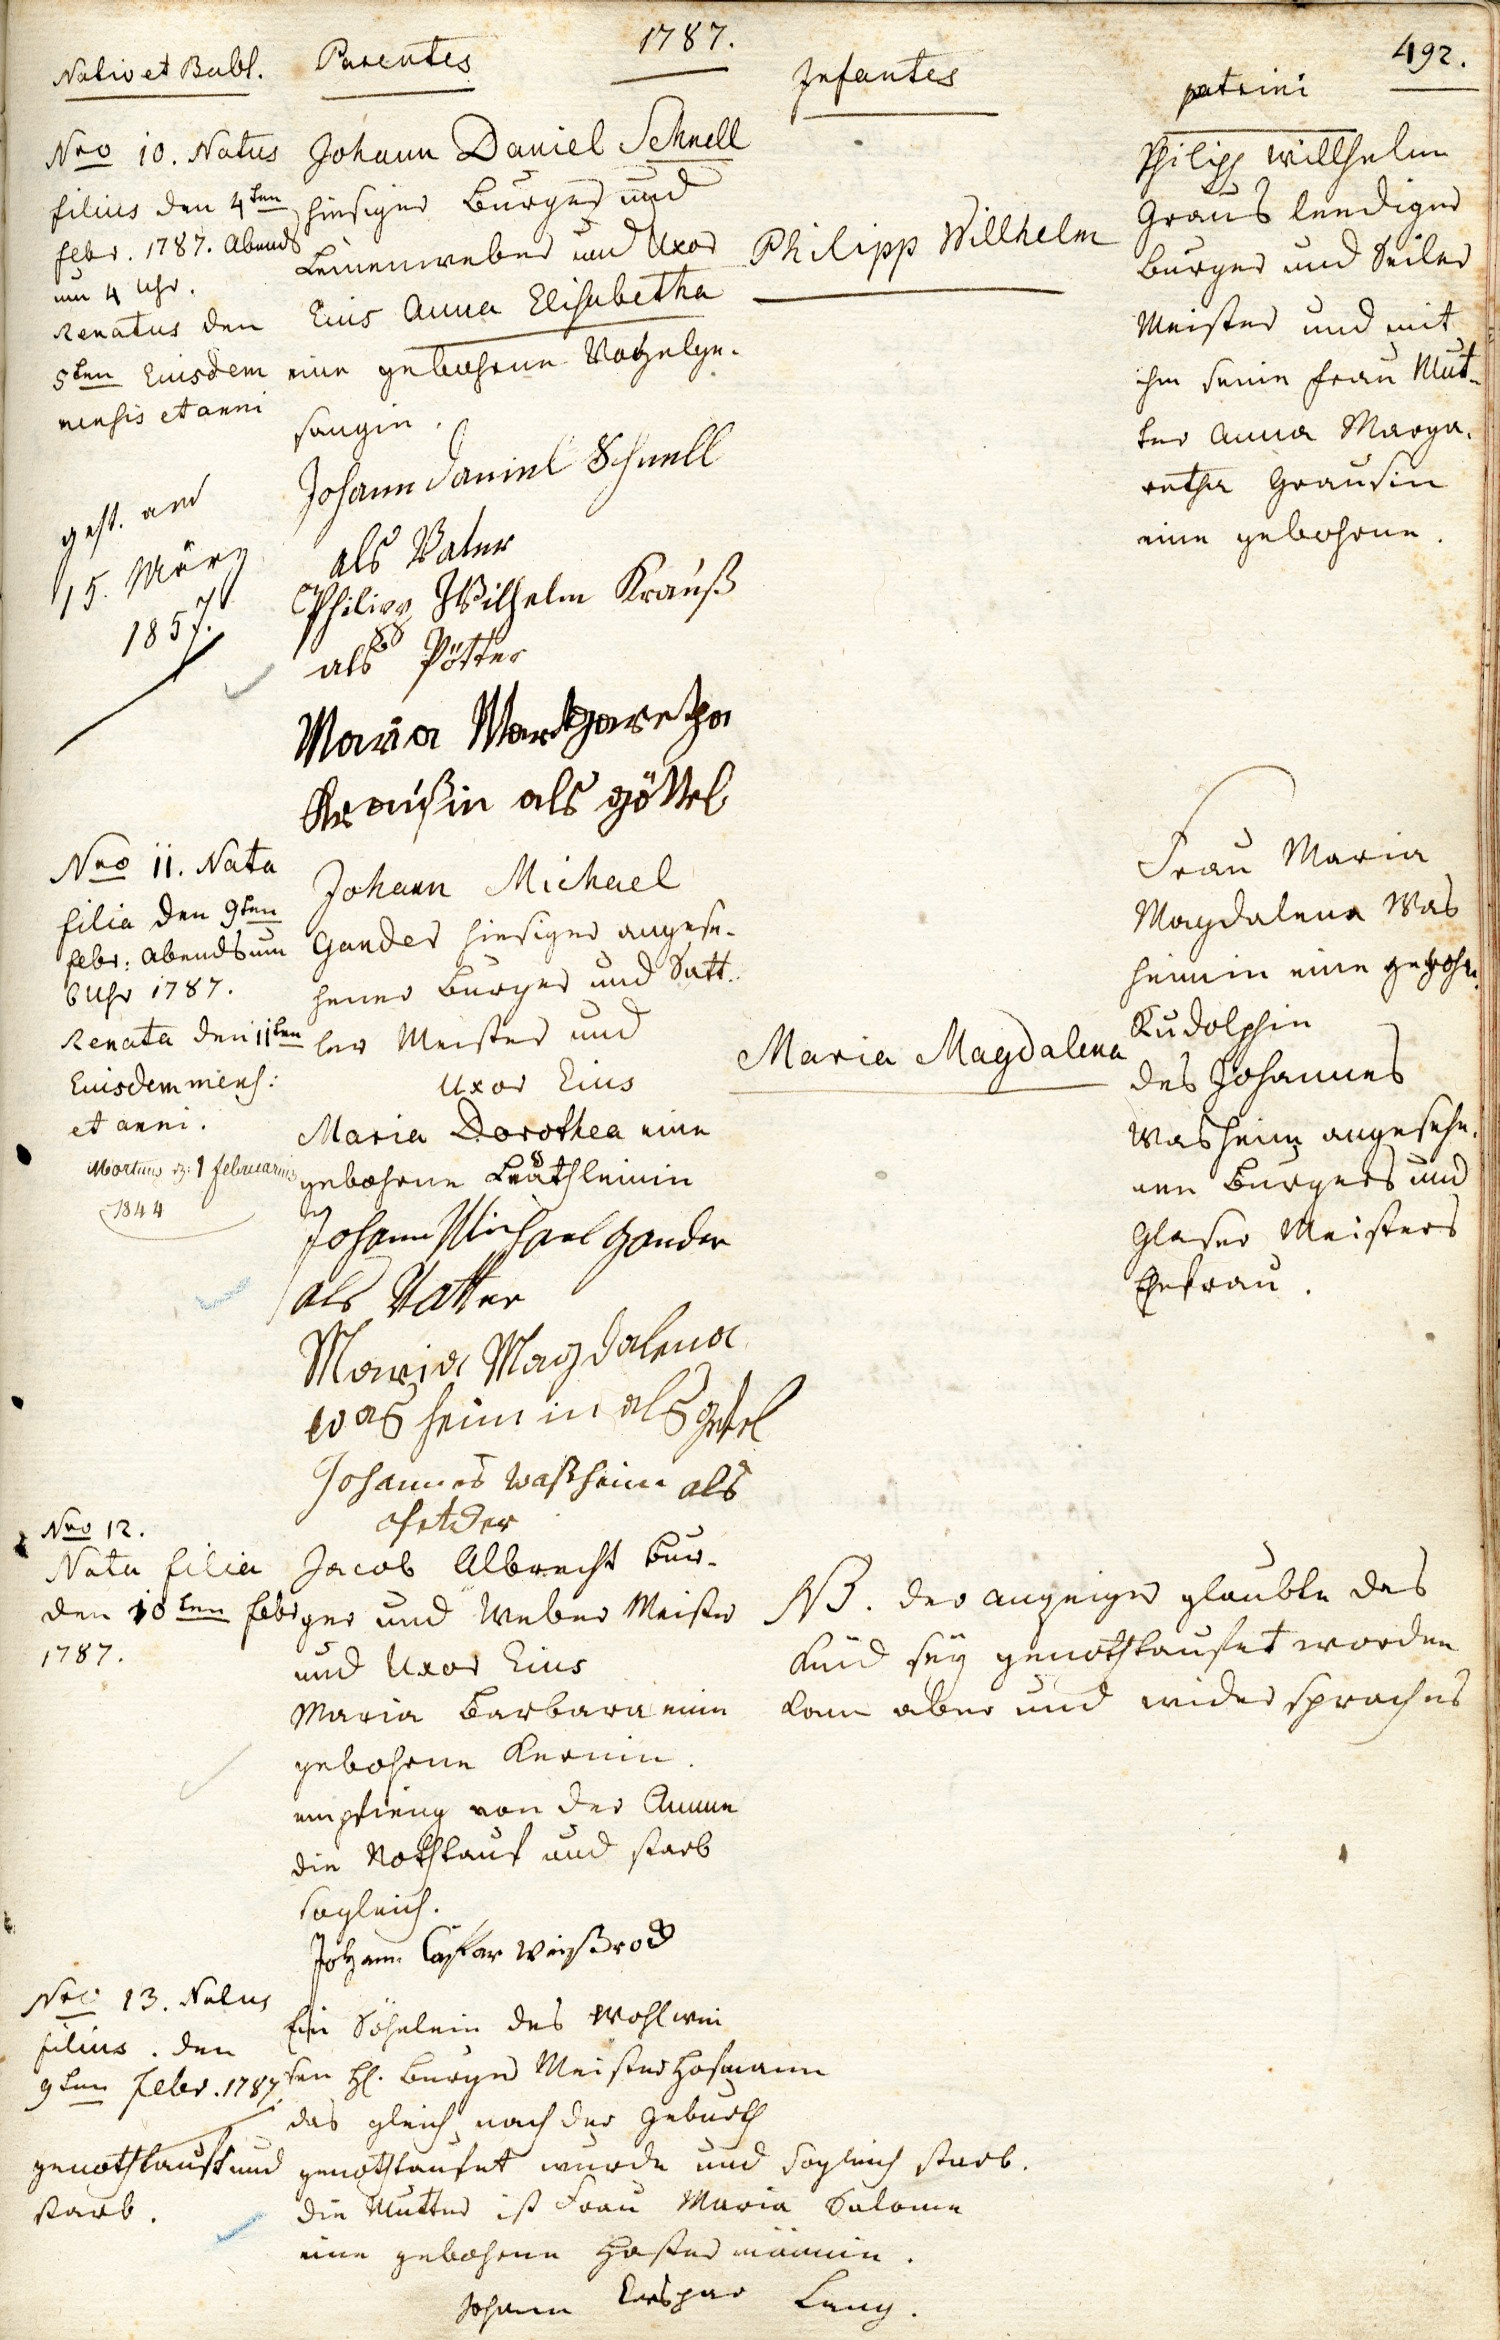 1787.
492.
Nativ et Babt.
Parentes
Infantes
patrini
Nro 10. Natus
filius den 4ten
febr. 1787. Abends
um 4 Uhr.
Renatus den
5ten Eiusdem
mensis et anni
gest. am
15. März
1857.
Johann Daniel Schnell
hiesiger Burger und
Leinenweber und Uxor
Eius Anna Elisabetha
eine gebohrne Vogelge-
sangin.
Johann Daniel Schnell
als Vater
Philipp Wilhelm Krauß
als Pötter
Maria Markgaretha
Kraußin als göttel
Philipp Willhelm
Philipp Willhelm
Graus leediger
Burger und Seiler
Meister und mit
ihm seine Frau Mut-
ter Anna Marga-
retha Grausin
eine gebohrne.
Nro 11. Nata
filia den 9ten
febr: Abends um
6 Uhr 1787.
Renata den 11ten
Eiusdem mens:
et anni.
Mortuus 1 februarius
1844
Johann Michael
Gander hiesiger angese-
hener Burger und Satt-
ler Meister und
Uxor Eius
Maria Dorothea eine
gebohrne
Johann Michael Gander
als Vatter
Maria Magdalena
washeimin als
Johannes Waßheim als
Maria Magdalena
Frau Maria
Magdalena Was
heimin eine gebohrn.
Rudolphin
des Johannes
Washeim angesehe-
nen Burgers und
Glaser Meisters
Ehefrau.
Nro 12.
Nata filia
den 10ten febr
1787.
Jacob Albrecht Bur-
ger und Weber Meister
und Uxor Eius
Maria Barbara eine
gebohrne Kernin.
empfieng von der Amme
die Nothtauf und starb
sogleich.
Johann Caspar Weißrod
NB. der Anzeiger glaubte das
Kind seÿ genothtaufet worden
kam aber und widersprach es
Nro 13. Natus
filius. den
9ten Febr. 1787
genothtauft und
starb.
Ein Söhnlein des Wohlwei
sen H. Burger Meister Hofmann
das gleich nach der Geburth
genothtaufet wurde und sogleich starb.
die Mutter ist Frau Maria Salome
eine gebohrne
Johann Caspar Lang.